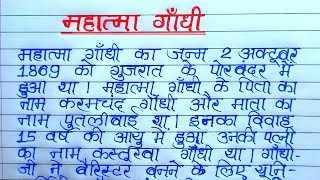 महात्मा गाँधी
महात्मा गाँधी का जन्म 2 अक्टूबर
1869 को गुजरात के पोरबंदर में
हुआ था । महात्मा गाँधी के पिता का
नाम करमचंद गाँधी और माता का
नाम पुतलीबाई था । इनका विवाह
15 वर्ष की आयु में हुआ, उनकी पत्नी
का नाम कस्तूरबा गाँधी था । गाँधी-
जी ने बैरिस्टर बनने के लिए यूनि-